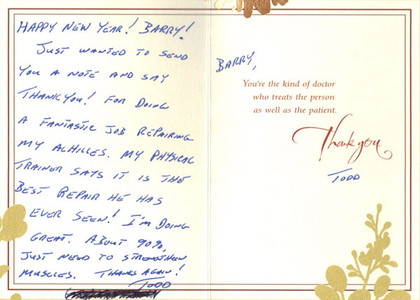 HAPPY NEW YEAR! BARRY!
JUST WANTED TO SEND
YOU A NOTE AND SAY
THANKYOU! FOR DOING
A FANTASTIC JOB REPAIRING
MY ACHILLES. MY PHYSICAL
TRAINOR SAYS IT IS THE
BEST REPAIR HE HAS
EVER SEEN! I'M DOING
GREAT. ABOUT 90%,
JUST NEED TO STRENGTHEN
MUSCLES. THANKS AGAIN!
TODD
BARRY,
You're the kind of doctor
who treats the person
as well as the patient.
Thank you
TODD